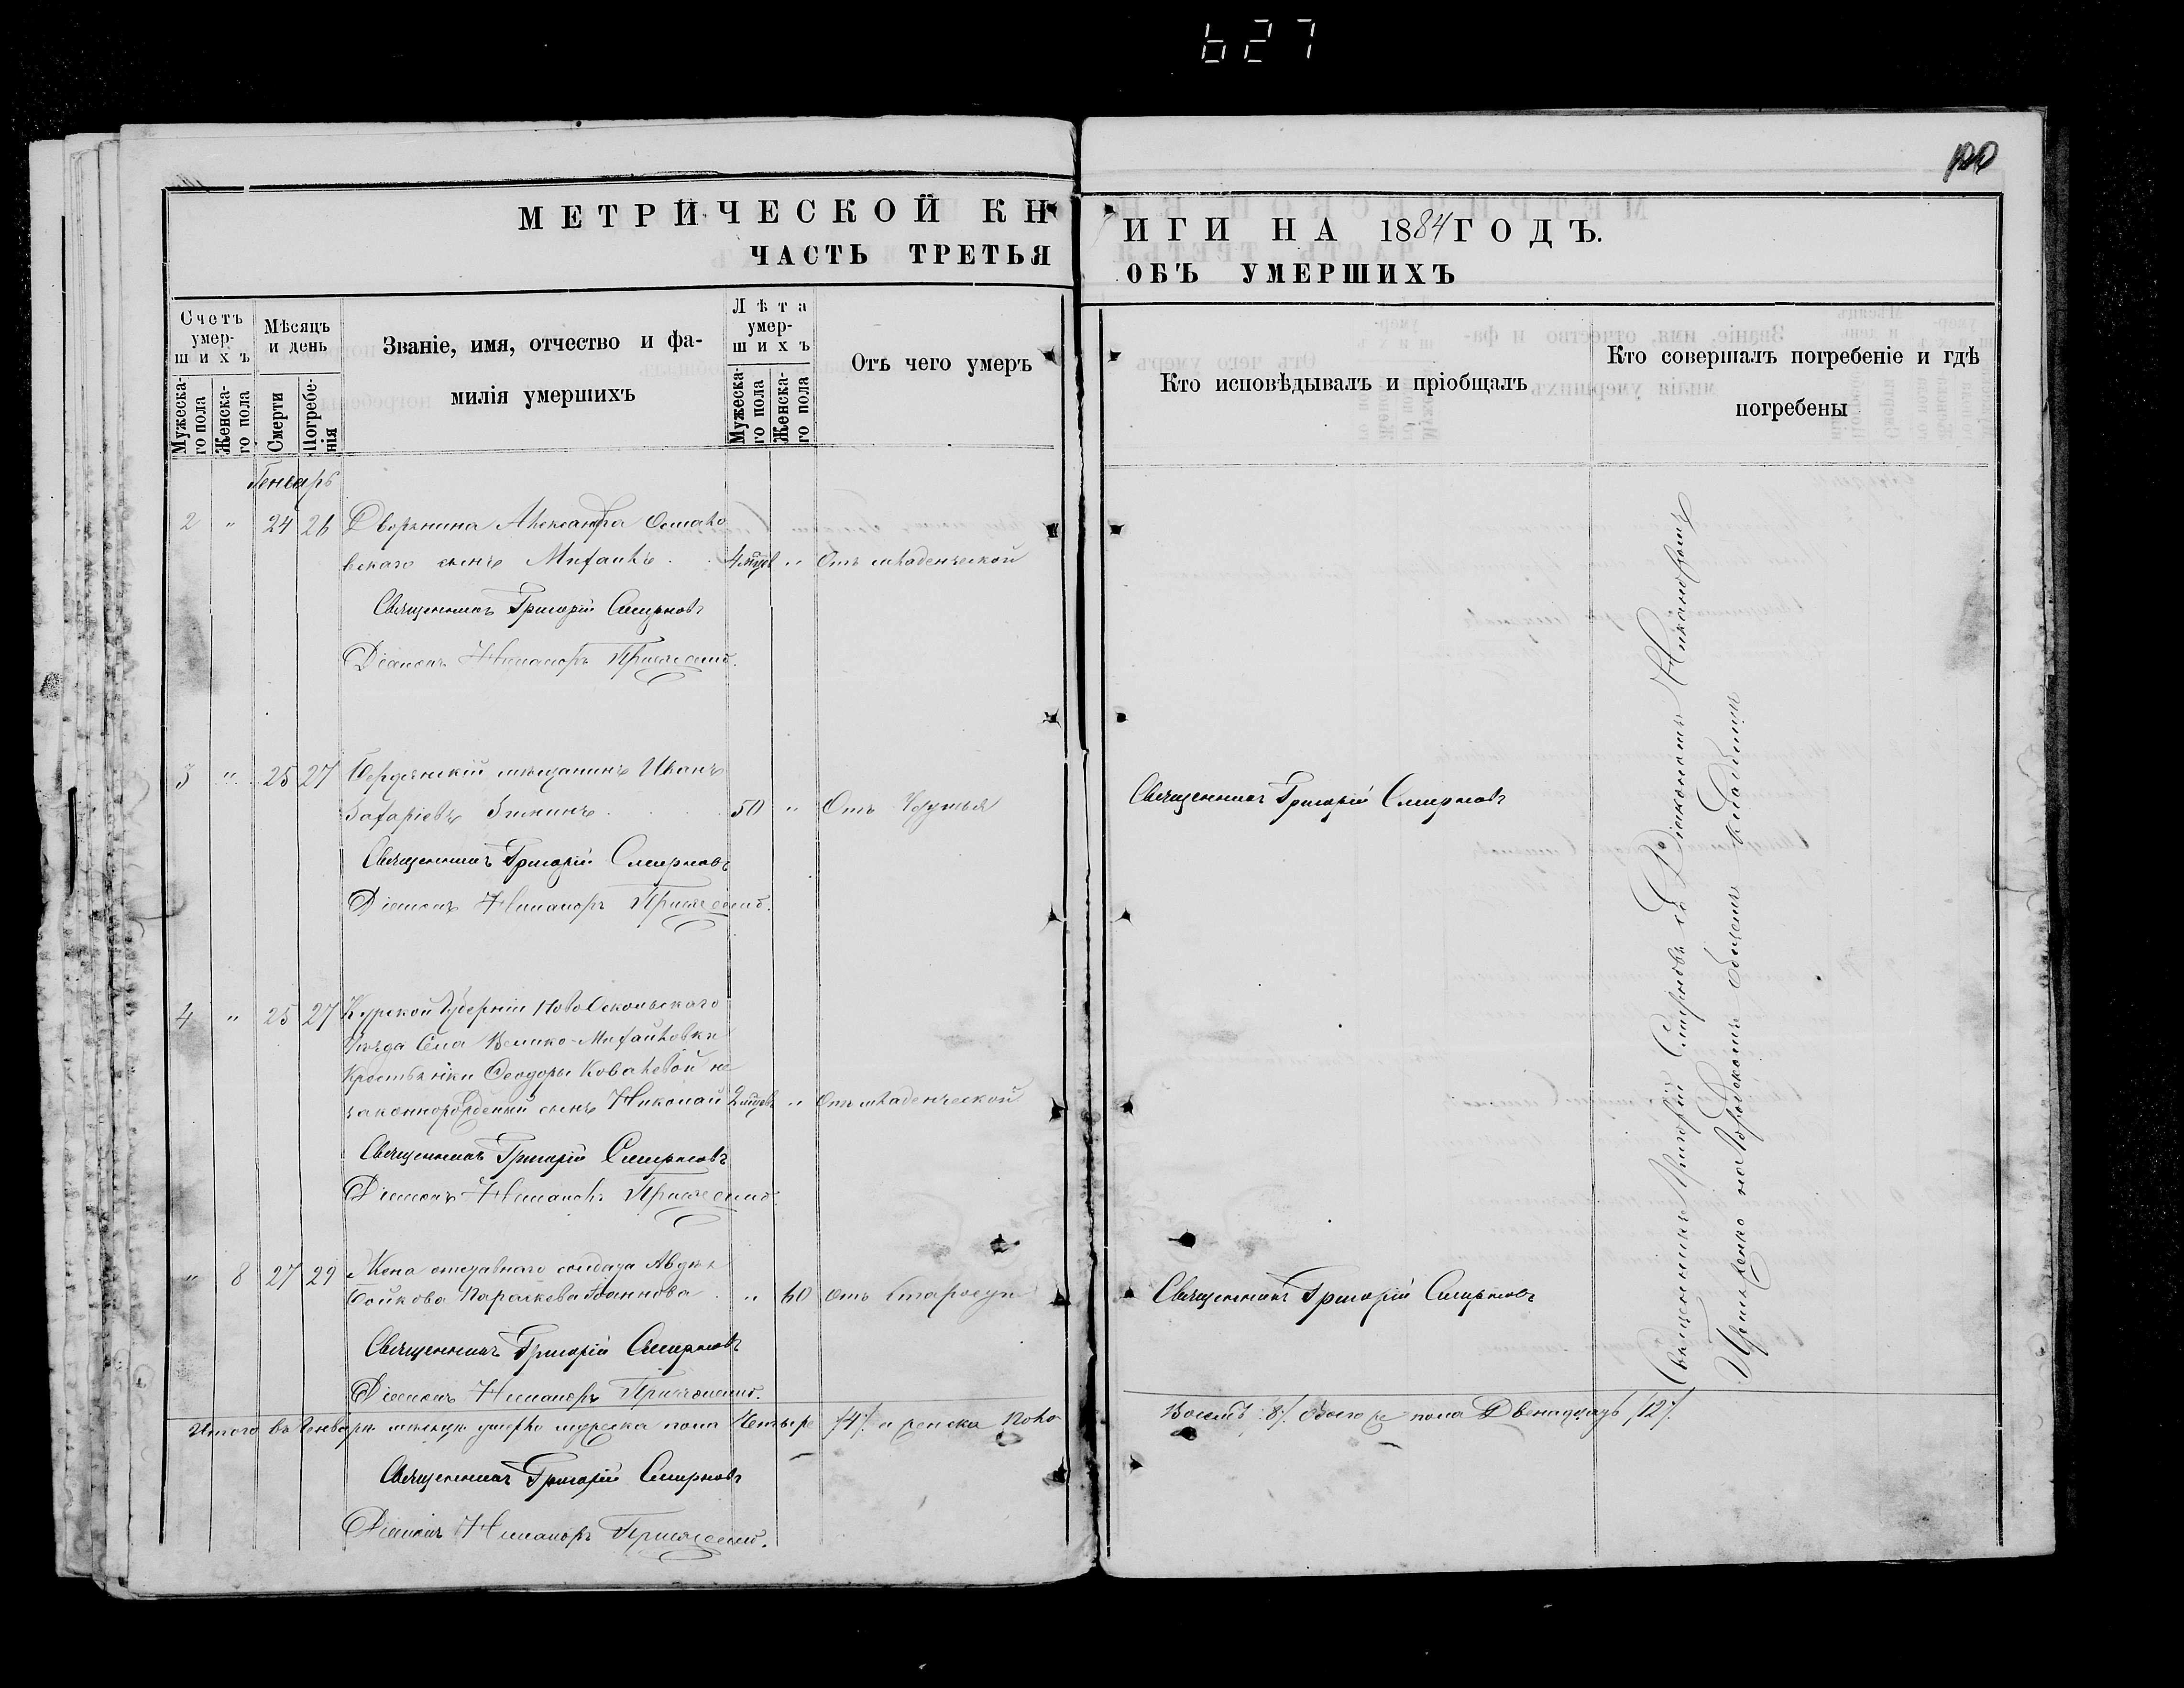 627
МЕТРИЧЕСКОЙ КНИГИ НА 1884 ГОДЪ.
ЧАСТЬ ТРЕТЬЯ ОБЪ УМЕРШИХЪ
Счетъ умерших ъ
Мужеска-го пола
Женска-го пола
Мѣсяцъ и день
Смерти
Погребе-нія
Званіе, имя, отчество и фа-
милія умершихъ
Лѣта умер-ших ъ
Мужеска-го пола
Женска-го пола
Отъ чего умеръ
Кто исповѣдывалъ и пріобщалъ
Кто совершалъ погребеніе и гдѣ
погребены
Генварь
2 " 24 26 Дворянина Александра Остало
вскаго сынъ Михаилъ . . 4 мѣсяц " Отъ младенческой
Священникъ Григорій Смирновъ
Діаконъ Никаноръ
3 " 25 27 Бердянскій мѣщанинъ Иванъ
Захаріевъ Зининъ 50 " Отъ Священникъ Григорій Смирновъ
Священникъ Григорій Смирновъ
Діаконъ Никаноръ
4 " 25 27 Курской Губерніи НовоОскольскаго
Уѣзда Села Велико-Михайловки
Крестьянки Ѳеодоры Ковалевой не
законнорожденный сынъ Николай 2 мѣсяц " Отъ младенческой
Священникъ Григорій Смирновъ
Діаконъ Никаноръ
" 8 27 29 Жена отставнаго солдата Авдѣя
Бойкова Параскева Іоаннова . " 60 Отъ старости Священникъ Григорій Смирновъ
Священникъ Григорій Смирновъ
Діаконъ Никаноръ
Священникъ Григорій Смирновъ съ Діакономъ Никаноромъ
на городскомъ общемъ кладбищѣ
Итого въ Генварѣ мѣсяцѣ умерло мужеска пола Четыре /4/ и женска пола Восемь /8/. Обоего же пола Двенадцать /12/.
Священникъ Григорій Смирновъ
Діаконъ Никаноръ